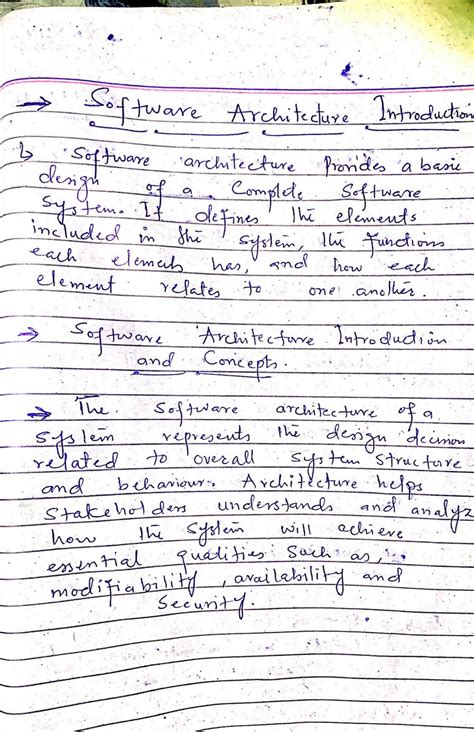 → Software Architecture Introduction
↳ Software architecture Provides a basic
design of a Complete Software
System. It defines the elements
included in the system, the functions
each elements has, and how each
element relates to one another.
→ Software Architecture Introduction
and Concepts.
→ The Software architecture of a
System represents the design decision
related to overall system structure
and behaviour. Architecture helps
Stakeholders understands and analyz
how the System will achieve
essential qualities Such as,
modifiability, availability and
Security.